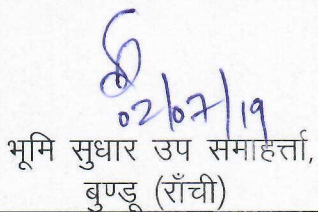 02/07/19
भूमि सुधार उप समाहर्त्ता,
बुण्डू (राँची)